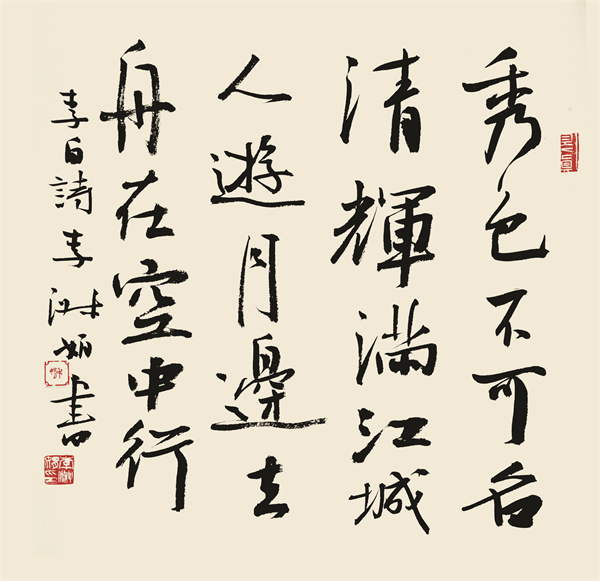 秀色不可名
清輝滿江城
人遊月邊去
舟在空中行
李白詩李書